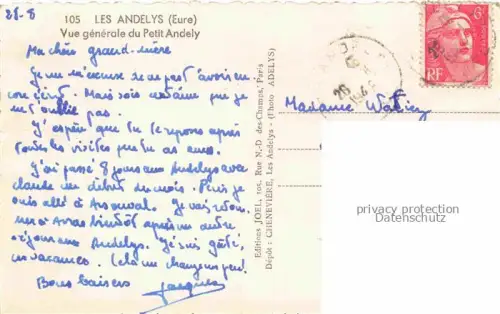 28-8
105 LES ANDELYS (Eure)
Vue générale du Petit Andely
Ma chère grand-mère
Je m'excuse de ne pas t'avoir en
core écrit. Mais sois certaine que je
ne t'oublie pas.
J'espère que tu te reposes après
toutes les visites que tu as eues.
J'ai passé 8 jours aux Andelys avec
Claude au début du mois. Puis je
suis allé à Arsonval. Je vais
à Arras bientôt après un autre
séjour aux Andelys. Je suis gâté,
en vacances. Cela me change un peu!
Bons baisers
Jacques
Editions JOEL, 105, Rue N.-D des-Champs, Paris
Dépôt : CHENEVIÈRE, Les Andelys - (Photo ADELYS)
Madame
6F
POSTES
RF
privacy protection
Datenschutz